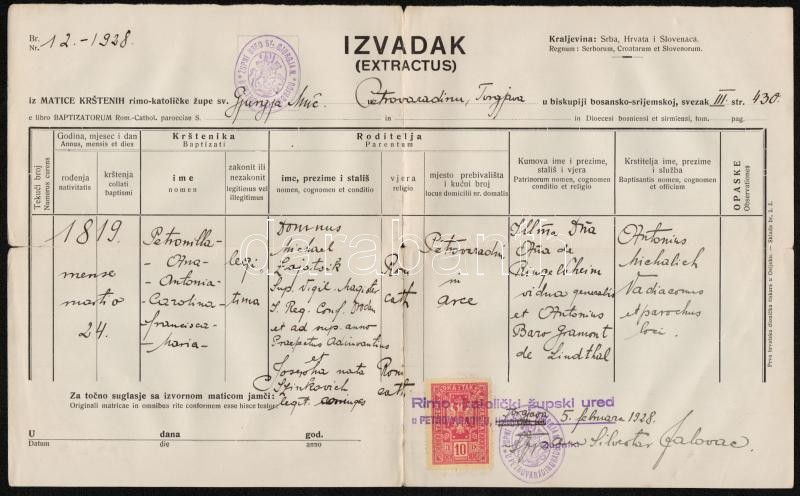 Br.
Nr. 12.-1928.
IZVADAK
(EXTRACTUS)
Kraljevina: Srba, Hrvata i Slovenaca.
Regnum: Serborum, Croatarum et Slovenorum.
iz MATICE KRŠTENIH rimo-katoličke župe sv. Gjurgja Muč. u Petrovaradinu, Tvrgjava u biskupiji bosansko-srijemskoj, svezak III str. 430.
e libro BAPTIZATORUM Rom.-Cathol. paroeciae S. in in Dioecesi bosniensi et sirmiensi, tom. pag.
Tekući broj
Numerus currens
Godina, mjesec i dan
Annus, mensis et dies
rođenja
nativitatis
krštenja
collati
baptismi
Krštenika
Baptizati
ime
nomen
zakonit ili
nezakonit
legitimus vel
illegitimus
Roditelja
Parentum
ime, prezime i stališ
nomen, cognomen et conditio
vjera
religio
mjesto prebivališta
i kućni broj
locus domicilii nr. domalis
Kumova ime i prezime,
stališ i vjera
Patrinorum nomen, cognomen
conditio et religio
Krstitelja ime, prezime
i služba
Baptisantis nomen, cognomen
et officium
OPASKE
Observationes
1819.
mense
martio
24.
Petronilla-
- Ana-
- Antonia-
Carolina-
Francisca-
Maria-
legi
tima
Domnus
Michael
Lajatsik
Sup. Vigil. Magister
S. Reg. Conf.
et ad
et
Josepha nata
Stinkovich
legit. conjuges
Rom.
cath.
Rom.
cath.
Petrovaradini
in
arce
Illma Dna
Ana de
Ringelsheim
vidua generalis
et Antonius
Baro Gramont
de Lindthal
Antonius
Michalich
Vadiaconus
et parochus
loci.
Prva hrvatska dionička tiskara u Osijeku.
Za točno suglasje sa izvornom maticom jamči:
Originali matricae in omnibus rite conformem esse hisce testor:
U dana god.
Datum die anno
10
Rimo-katolički župski ured
u PETROVARADINU, Tvrgjava 5. februara 1928.
Silvestar Jalovac.
darabanth